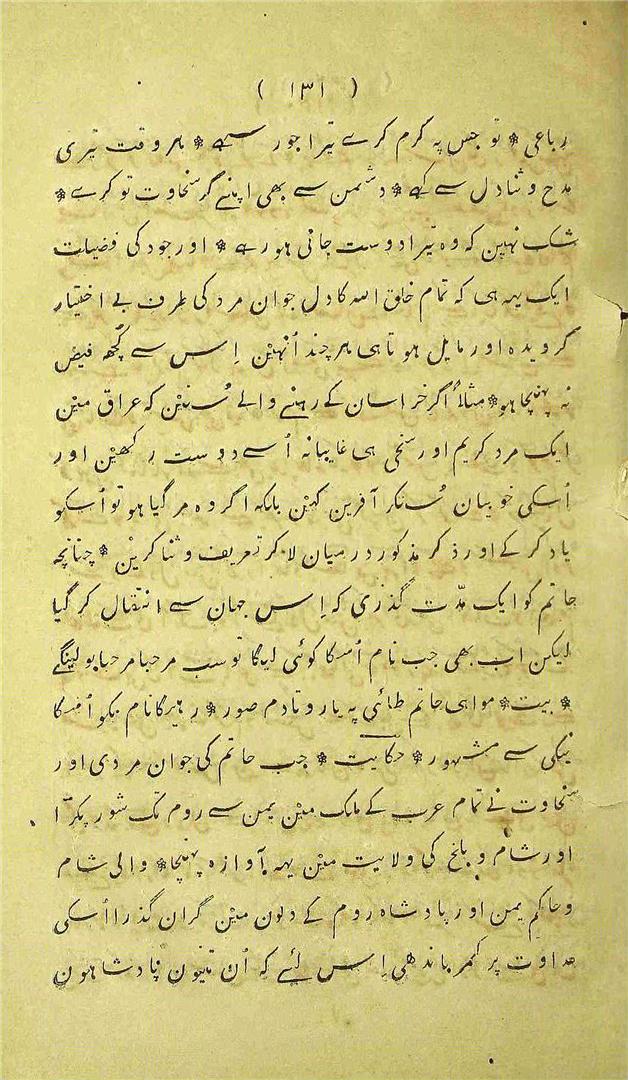 ( ۱۳۱ )
رباعی * تو جس پہ کرم کرے تیرا جور سہے * ہر وقت تیری
مدح و ثنا دل سے کہے * دشمن سے بھی اپنے گر سخاوت تو کرے *
شک نہین کہ وہ تیرا دوست جانی ہو رہے * اور جود کی فضیلت
ایک یہہ ہی کہ تمام خلق اللہ کا دل جوان مرد کی طرف بے اختیار
گرویدہ اور مایل ہوتا ہی ہر چند اُنہیْن اِس سے کُچھ فیض
نہ پہنچا ہو * مثلاً اگر خراسان کے رہنے والے سُنیْن کہ عراق میْن
ایک مرد کریم اور سخی ہی غایبانہ اُسے دوست رکھیْن اور
اُسکی خوبیان سُنکر آفرین کہیْن بلکہ اگر وہ مر گیا ہو تو اُسکو
یاد کر کے اور ذکر مذکور درمیان لا کر تعریف و ثنا کریْن * چنانچہ
حاتم کو ایک مدّت گذری کہ اِس جہان سے انتقال کر گیا
لیکن اب بھی جب نام اُسکا کوئی لیگا تو سب مرحبا مرحبا بولینگے
* بیت * مواہی حاتم طائی پہ یارو تا دم صور * رہیگا نام نکو اُسکا
نیکی سے مشہور * حکایت * جب حاتم کی جوان مردی اور
سخاوت نے تمام عرب کے ملک میْن یمن سے روم تک شور پکڑا
اور شام و بلخ کی ولایت میْن یہہ آوازہ پہنچا * والی شام
و حاکم یمن اور پادشاہ روم کے دلون میْن گران گذرا اُسکی
عداوت پر کمر باندھی اِس لئے کہ اُن تینون پادشاہون